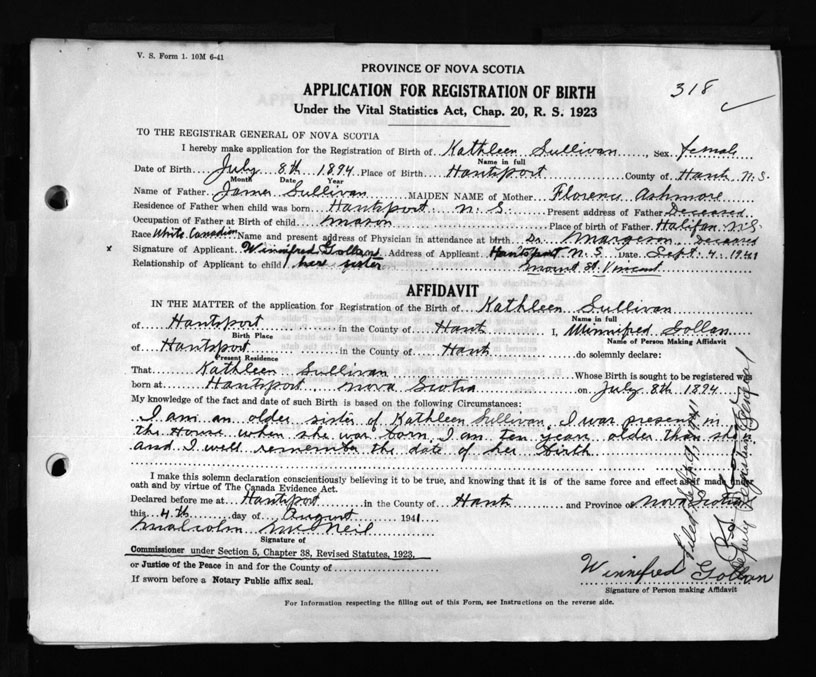 V. S. Form 1. 10M 6-41
PROVINCE OF NOVA SCOTIA
APPLICATION FOR REGISTRATION OF BIRTH
318
Under the Vital Statistics Act, Chap. 20, R. S. 1923
TO THE REGISTRAR GENERAL OF NOVA SCOTIA
I hereby make application for the Registration of Birth of Kathleen Sullivan, Sex female
Name in full
Date of Birth July 8th 1894 Place of Birth Hantsport County of Hants N.S.
Month Date Year
Name of Father James Sullivan MAIDEN NAME of Mother Florence Ashmore
Residence of Father when child was born Hantsport N. S. Present address of Father Deceased
Occupation of Father at Birth of child mason Place of birth of Father Halifax N.S.
Race White Canadian Name and present address of Physician in attendance at birth Dr. Margeson Deceased
x Signature of Applicant Winnifred Address of Applicant Hantsport N. S. Date Sept. 4. 1941
Relationship of Applicant to child here sister Mount St. Vincent
AFFIDAVIT
IN THE MATTER of the application for Registration of the Birth of Kathleen Sullivan
Name in full
of Hantsport in the County of Hants I, Winnifred
Birth Place Name of Person Making Affidavit
of Hantsport in the County of Hants do solemnly declare:
Present Residence
That Kathleen Sullivan Whose Birth is sought to be registered was
born at Hantsport Nova Scotia on July 8th 1894
My knowledge of the fact and date of such Birth is based on the following Circumstances:
I am an older sister of Kathleen Sullivan, I was present in
the House when she was born, I am ten years older than she
and I well remember the date of her birth
I make this solemn declaration conscientiously believing it to be true, and knowing that it is of the same force and effect as if made under
oath and by virtue of The Canada Evidence Act.
Declared before me at Hantsport in the County of Hants and Province of Nova Scotia
this 4th day of August 1941
Malcolm McNeil
Signature of
Commissioner under Section 5, Chapter 38, Revised Statutes, 1923.
or Justice of the Peace in and for the County of
If sworn before a Notary Public affix seal.
Winnifred
Signature of Person making Affidavit
For Information respecting the filling out of this Form, see Instructions on the reverse side.
Filed Sept 9, 1941
Deputy Registrar General